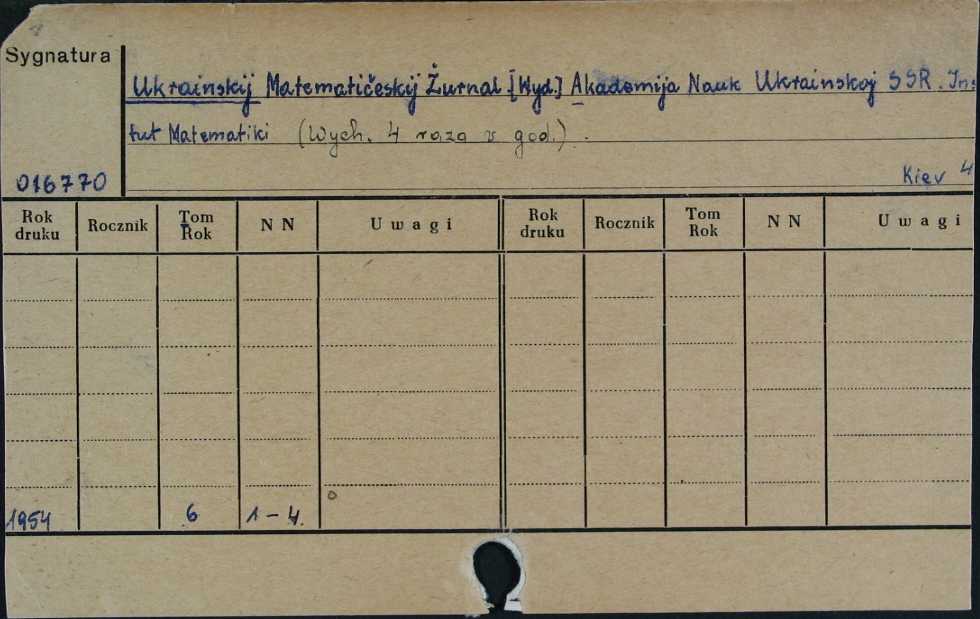 Sygnatura
Ukrainskij Matematičeskij Žurnal [Wyd.] Akademija Nauk Ukrainskoj SSR. Ins
tut Matematiki (Wych. 4 raza v god.).
016770
Kiev 4
Rok druku Rocznik Tom Rok N N Uwagi Rok druku Rocznik Tom Rok N N Uwagi
1954 6 1-4.